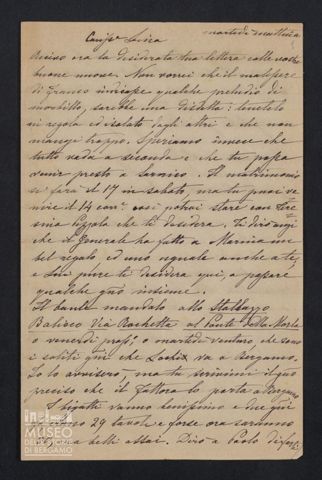 martedì mattina
Cariss.ª Luisa
Ricevo ora la desiderata tua lettera colle vostre
buone nuove. Non vorrei che il malessere
di Franco indicasse qualche preludio di
morbillo, sarebbe una disdetta: tenetelo
in regola ed isolato dagli altri e che non
mangi troppo. Speriamo invece che
tutto vada a seconda e che tu possa
venir presto a Sarnico. Il matrimonio
si farà il 17 in sabato, ma tu puoi ve
nire il 14 così potrai stare con Tere
sina che ti desidera. Ti dirò anzi
che il Generale ha fatto a Marnia un
bel regalo, ed uno uguale anche a te,
e Lui pure ti desidera qui, a passare
qualche giorno insieme.
Il baule mandalo allo Stallazzo
Balisco Via Rochetta al Ponte della Morla
o venerdì pross.º o martedì venturo, che sono
i soliti giorni che va a Bergamo.
Io lo avviserò, ma tu scrivimi il giorno
preciso che il fattore lo porta a Bergamo
I bigatti vanno benissimo e due giorni
29 tavole e forse ora saranno
belli assai. Dirò a Paolo di
MUSEO
DELLE STORIE
DI BERGAMO